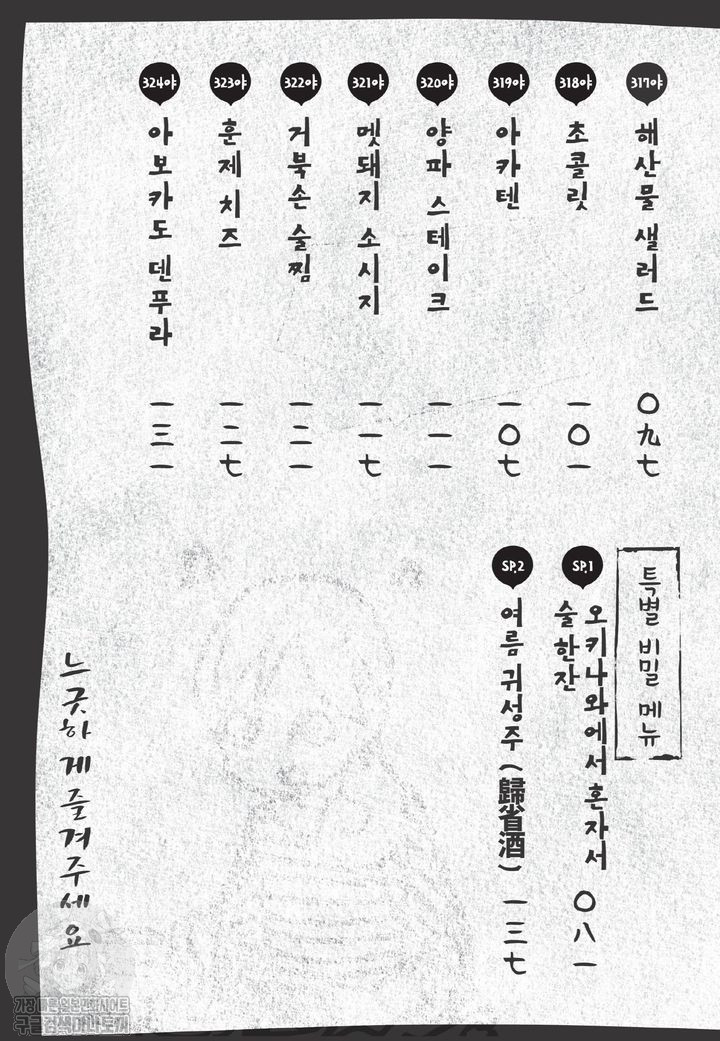 317야
해산물 샐러드
〇九七
318야
초콜릿
一〇一
319야
아카텐
一〇七
320야
양파 스테이크
一一一
321야
멧돼지 소시지
一一七
322야
거북손 술찜
一二一
323야
훈제 치즈
一二七
324야
아보카도 덴푸라
一三一
특별 비밀 메뉴
SP.1
오키나와에서 혼자서
술 한잔
〇八一
SP.2
여름 귀성주(歸省酒)
一三七
느긋하게 즐겨주세요
가장 빠른 일본만화 사이트
구글검색 마나토끼